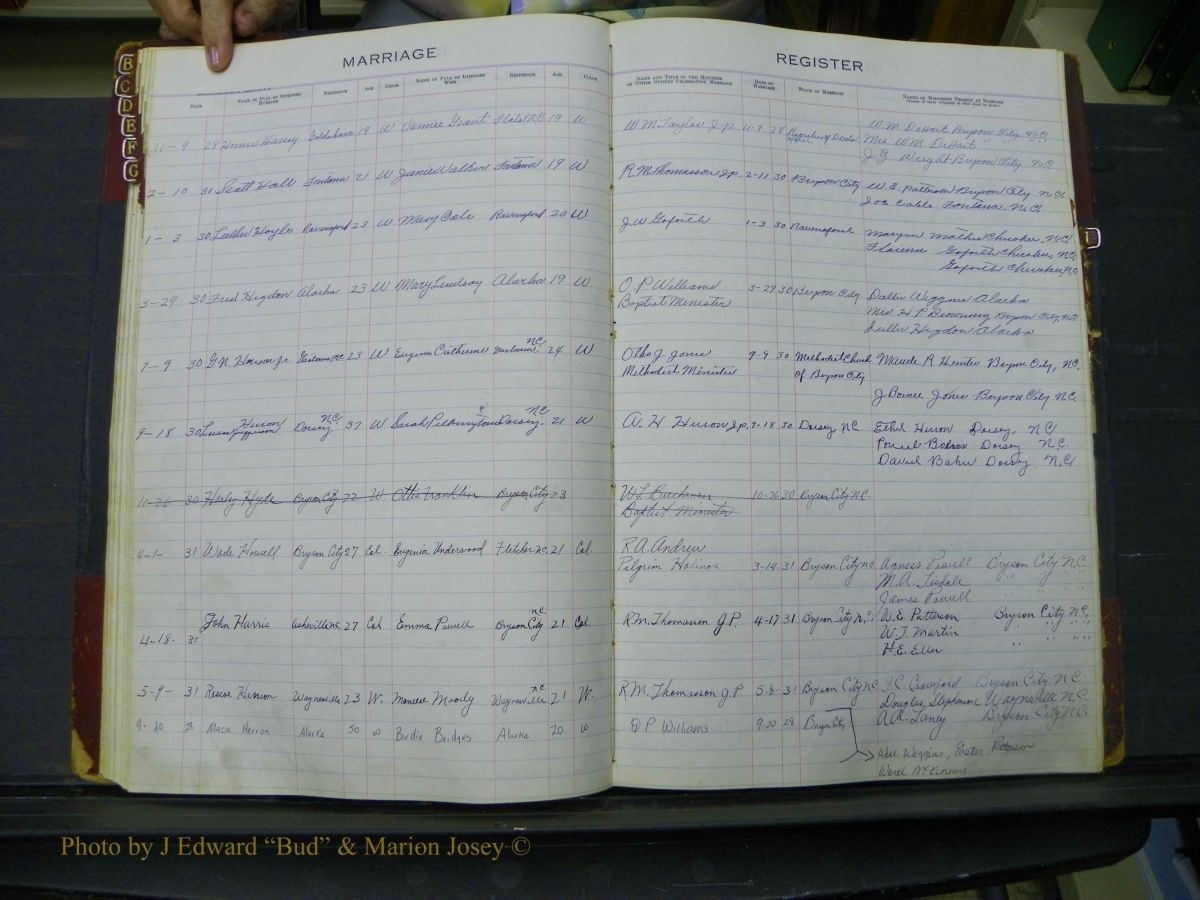 MARRIAGE REGISTER
DATE NAME IN FULL OF INTENDED HUSBAND RESIDENCE AGE COLOR NAME IN FULL OF INTENDED WIFE RESIDENCE AGE COLOR NAME AND TITLE OF THE MINISTER OR OTHER OFFICER CELEBRATING MARRIAGE DATE OF MARRIAGE PLACE OF MARRIAGE NAMES OF WITNESSES PRESENT AT MARRIAGE
B
C
D
E
F
G
11-9 28 Homer Haney Goldsboro 19 W Vannie Grant 19 W W M Taylor J.p. 11-9 28 W M DeHart Bryson City N.C.
Mrs W M DeHart " " "
J. G. Wright Bryson City N.C.
2-10 31 Scott Hall Fontana 21 W Janie Walker Fontana 19 W R.M Thomasson J.p. 2-11 30 Bryson City W. E. Patterson Bryson City N.C.
Joe Cable Fontana N.C.
1-3 30 Luther Hoyle Ravensford 23 W Mary Cole Ravensford 20 W J. W Goforth 1-3 30 Ravensford Mathis Cherokee, N.C.
Florence Goforth Cherokee, N.C.
Goforth Cherokee N.C.
3-29 30 Fred Higdon Alarka 23 W Mary Lindsay Alarka 19 W O. P. Williams 3-29 30 Bryson City Dallie Wiggins Alarka
Baptist Minister Mrs H. P Browning Bryson City, N.C.
Luther Higdon Alarka
7-9 30 G. N. Henson Jr. Gastonia NC 23 W Eugenia Catherine Gastonia N.C. 24 W Otho J. Jones 9-9 30 Methodist Church Maude R Hunter Bryson City, N.C.
Methodist Minister of Bryson City
J Jones Bryson City N.C.
9-18 30 Huron Dorsey N.C. 37 W Sarah Dorsey N.C. 21 W A. H Huron J.p. 9-18 30 Dorsey N.C Ethel Huron Dorsey, N.C.
Dorsey N.C.
David Baker Dorsey N.C.
10-26 30 Haley Hyde Bryson City 22 W Otha Franklin Bryson City 23 W L Buchanan 10-26 30 Bryson City N.C.
Baptist Minister
4-1- 31 Wade Howell Bryson City 27 Col. Euginia Underwood Fletcher N.C. 21 Col. R.A. Andrew
Pilgrim Holiness 3-14-31 Bryson City N.C. Agness Powell Bryson City N.C.
M.A. Tisdale " " "
James Powell " " "
4-18- 31 John Harris Asheville N.C 27 Col Emma Powell Bryson City N.C. 21 Col. R.M. Thomasson J.P. 4-17 31 Bryson City N.C. W.E. Patterson Bryson City N.C.
W.T. Martin " " "
H.E. Eller " " "
5-9- 31 Roscoe Henson Waynesville 23 W. Moody Waynesville N.C. 21 W. R.M. Thomasson J.P 5-8-31 Bryson City N.C. J.C. Crawford Bryson City N.C.
Douglas Stephenson Waynesville N.C.
A.A. Laney Bryson City N.C.
9-20 28 Mack Herron Alarka 50 W Birdie Bridges Alarka 20 W O P Williams 9-20 28 Bryson City
Wiggins, Easter Patterson
Photo by J Edward “Bud” & Marion Josey ©